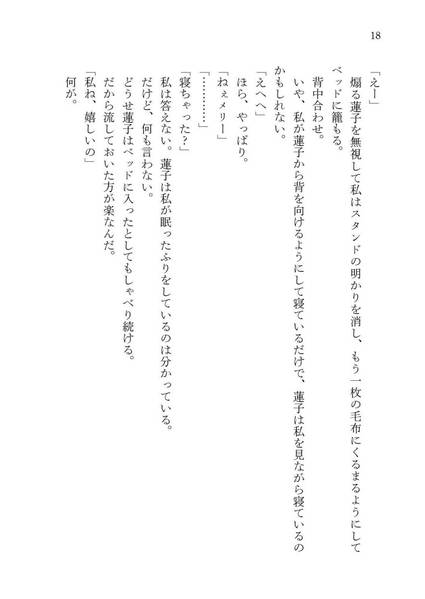 18
「えー」
煽る蓮子を無視して私はスタンドの明かりを消し、もう一枚の毛布にくるまるようにして
ベッドに籠もる。
背中合わせ。
いや、私が蓮子から背を向けるようにして寝ているだけで、蓮子は私を見ながら寝ているの
かもしれない。
「えへへ」
ほら、やっぱり。
「ねぇメリー」
「…………」
「寝ちゃった？」
私は答えない。蓮子は私が眠ったふりをしているのは分かっている。
だけど、何も言わない。
どうせ蓮子はベッドに入ったとしてもしゃべり続ける。
だから流しておいた方が楽なんだ。
「私ね、嬉しいの」
何が。